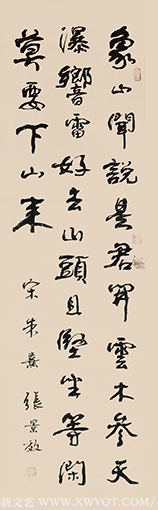 象山聞說是君開雲木參天
瀑響雷好去山頭且堅坐等閑
莫要下山来
宋朱熹 張景
新文艺/WWW.XWYQT.COM/